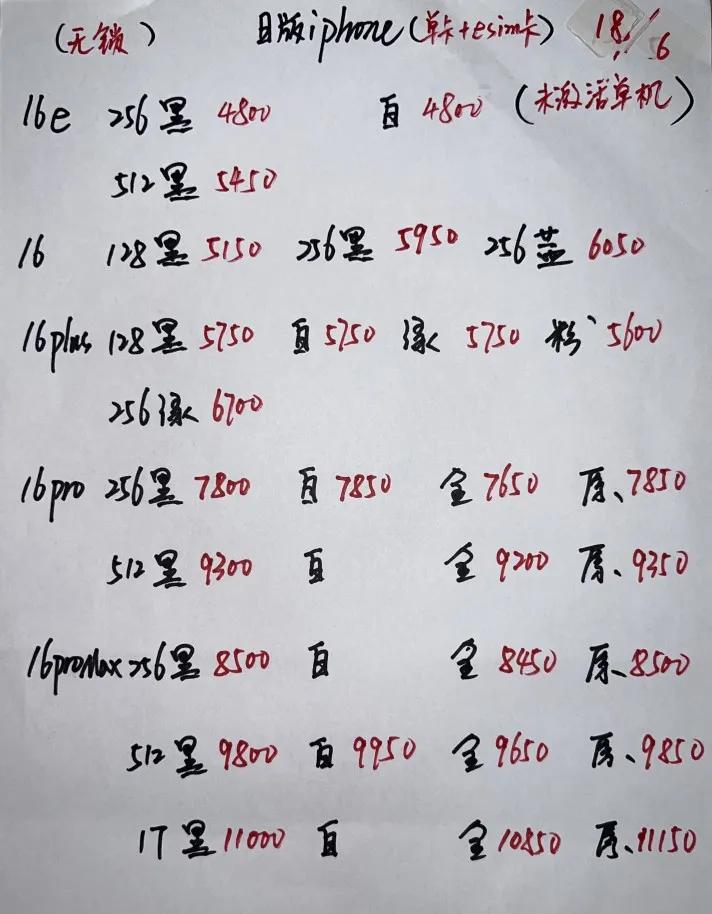 (无锁) 日版iphone(单卡+esim卡) 18/6
16e 256黑 4800 白 4800 (未激活单机)
512黑 5450
16 128黑 5150 256黑 5950 256蓝 6050
16plus 128黑 5750 白 5750 绿 5750 粉 5600
256绿 6700
16pro 256黑 7800 白 7850 金 7650 原、7850
512黑 9300 白 金 9200 原、9350
16proMax 256黑 8500 白 金 8450 原、8500
512黑 9800 白 9950 金 9650 原、9850
1T黑 11000 白 金 10850 原、11150